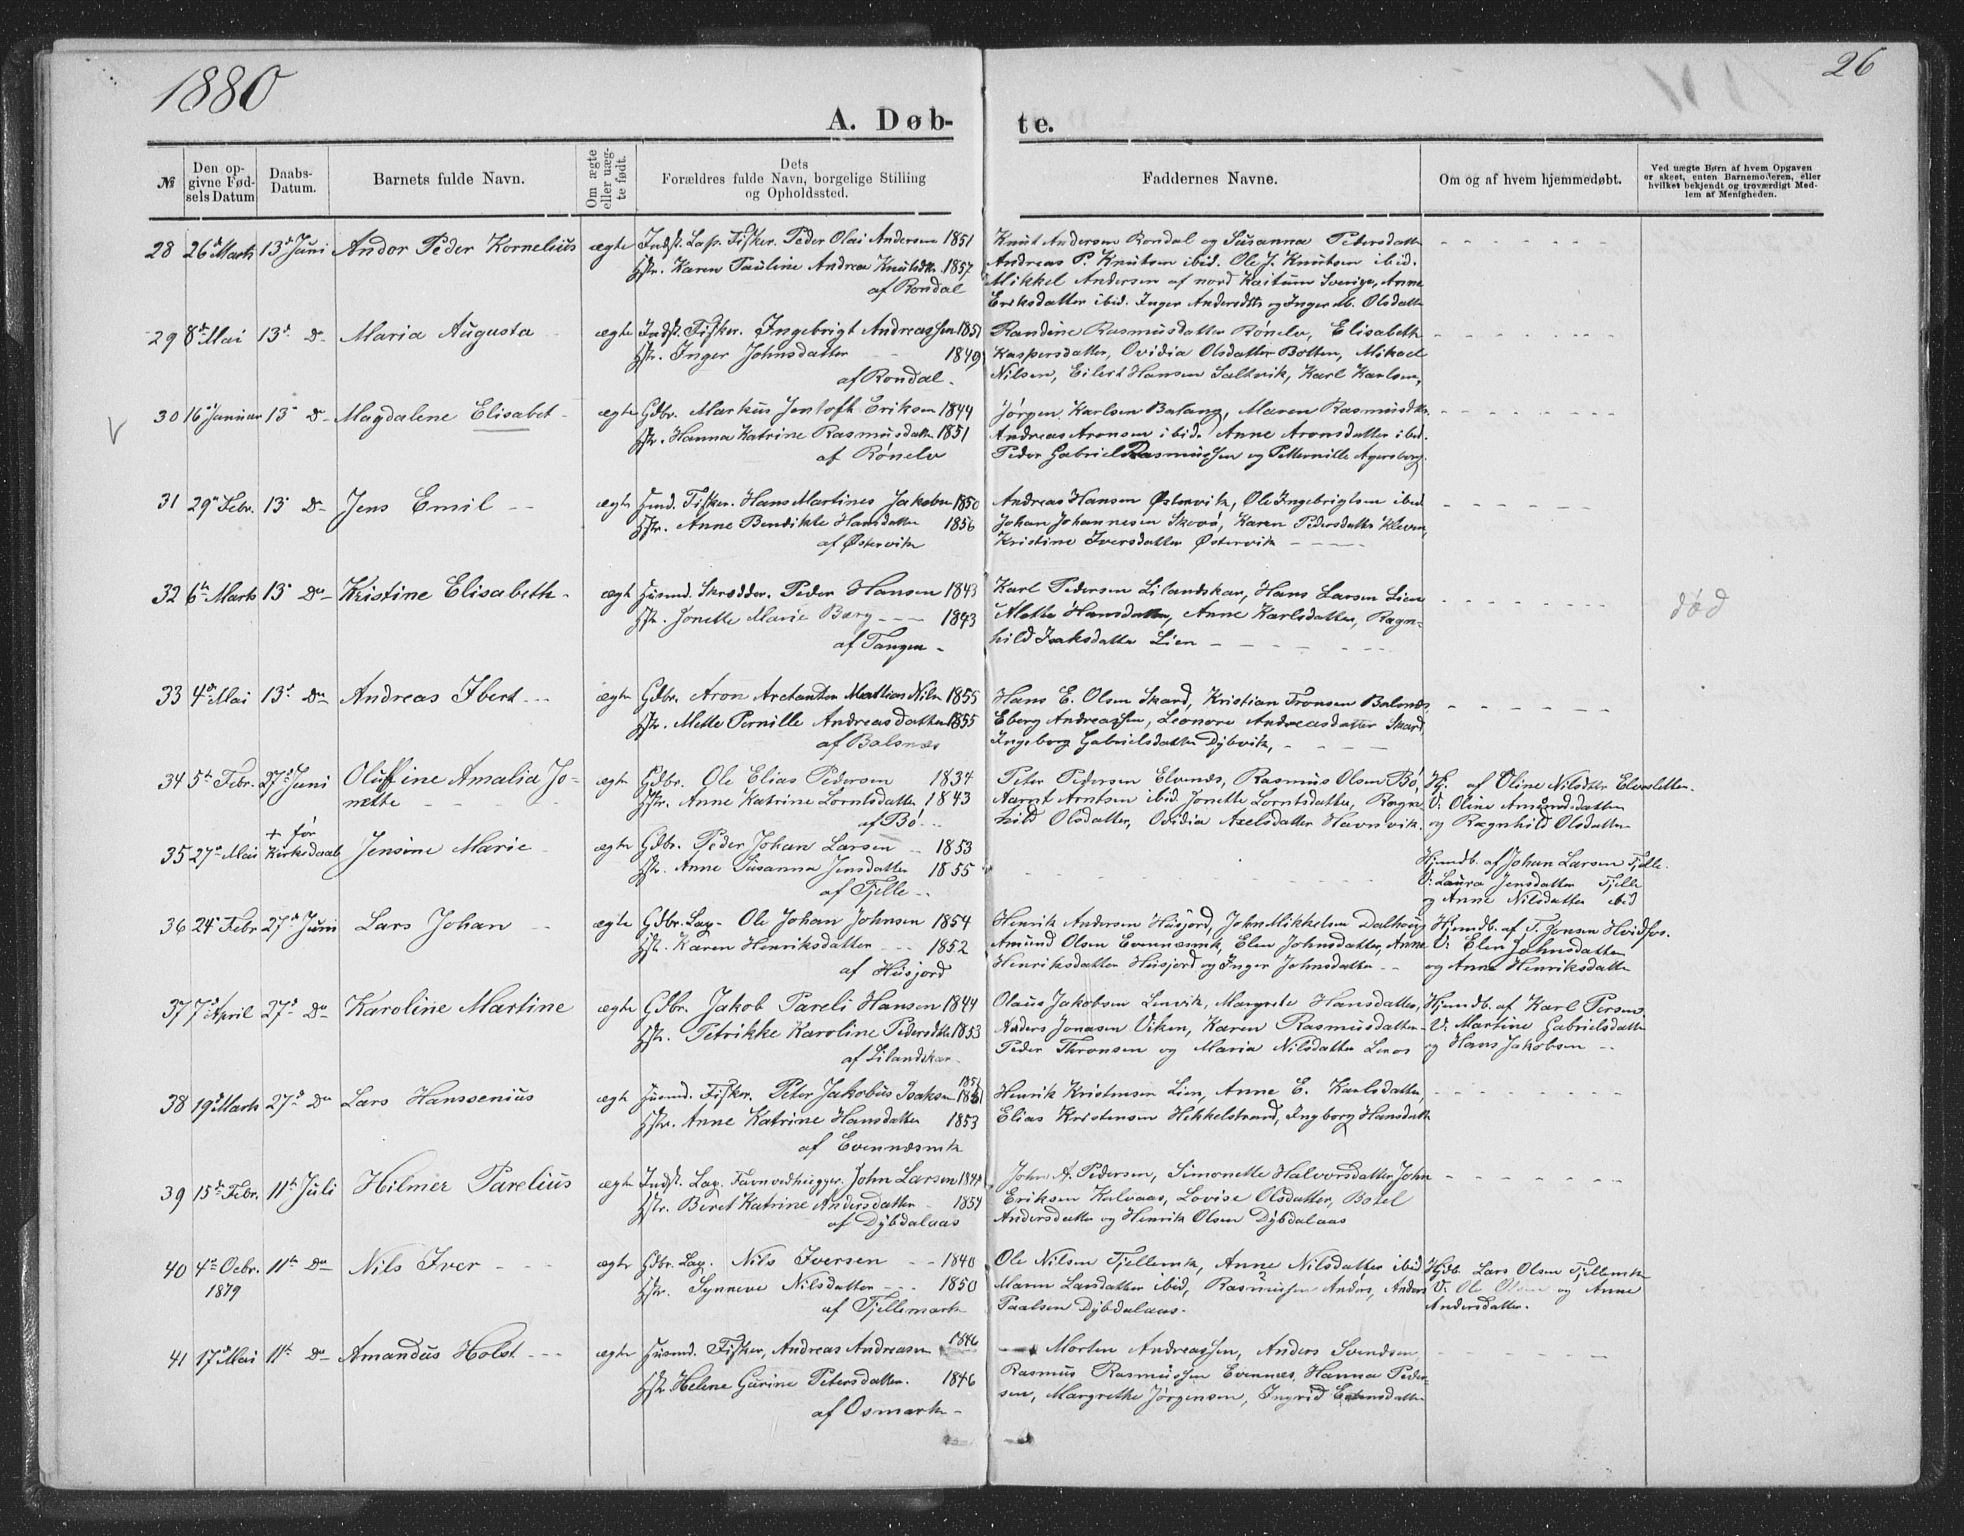 1880
26
A. Døb-
te.
№
Den op-
givne Fød-
sels Datum
Daabs-
Datum.
Barnets fulde Navn.
Om ægte
eller uæg-
te født.
Dets
Forældres fulde Navn, borgelige Stilling
og Opholdssted.
Faddernes Navne.
Om og af hvem hjemmedøbt.
Ved uægte Børn af hvem Opgaven
er skeet, enten Barnemoderen, eller
hvilket bekjendt og troværdigt Med-
lem af Menigheden.
28 26 Marts 13 Juni Andor Peder Kornelius ægte Indst. Lap. Fisker. Peder Olai Andersen 1851
Hstr. Karen Pauline Andrea Knutsdtr. 1857
af Rondal
Knut Andersen Rondal og Susanna Pedersdatter
Andreas P. Knutsen ibid. Ole J. Knutsen ibid.
Mikkel Andersen af nord Kaitum Sverige, Anne
Eriksdatter ibid. Inger Andersdtr og Inger M. Olsdatter
29 8 Mai 13 Do Maria Augusta ægte Indst. Fisker. Ingebrigt Andreassen 1851
Hstr. Inger Johnsdatter 1849
af Rondal.
Randine Rasmusdatter Rønelv, Elisabeth
Kaspersdatter, Ovidia Olsdatter Botten, Mikael
Nilsen, Eilert Hansen Saltvik, Karl Karlsen,
30 16 Januar 13 Do Magdalene Elisabet ægte Gdbr. Markus Jentoft Eriksen 1844
Hstr. Hanna Katrine Rasmusdatter 1851
af Rønelv
Jørgen Karlsen Balang, Maren Rasmusdtr.
Andreas Aronsen ibid. Anne Aronsdatter ibid.
Peder Gabriel Rasmussen og Petternille
31 29 Febr. 13 Do Jens Emil ægte Husmd. Fisker. Hans Martines Jakobsen 1850
Hstr. Anne Bendikte Hansdatter 1856
af Østervik
Andreas Hansen Østervik, Ole Ingebrigtsen ibid
Johan Johannesen Skovø, Karen Pedersdatter Kleven,
Kristine Iversdatter Østervik
32 6te Marts 13 Do Kristine Elisabeth ægte Husmd. Skrædder. Peder Hansen 1843
Hstr. Jonette Marie Berg 1843
af Tangen
Karl Pedersen Lilandskar, Hans Larsen Lien
Alethe Hansdatter, Anne Karlsdatter, Ragn-
hild Isaksdatter Lien
død
33 4de Mai 13 Do Andreas Ibert ægte Gdbr. Aron Mathias Nilsen 1855
Hstr. Mette Pernille Andreasdatter 1855
af Balsnæs
Hans E. Olsen Skard, Kristian Tronsen Balsnæs,
Eberg Andreassen, Leonore Andreasdatter Skard,
Ingeborg Gabrielsdatter Dybvik,
34 5te Febr. 27 Juni Oluffine Amalia Jo-
nette
ægte Gdbr. Ole Elias Pedersen 1834
Hstr. Anne Katrine Lorntsdatter 1843
af Bø
Peter Pedersen Elvenæs, Rasmus Olsen Bø,
Aarnt Arntsen ibid. Jonette Lorntsdatter, Ragn-
hild Olsdatter, Ovidia Axelsdatter Havnvik.
Hj. af Oline Nilsdtr Elvesletten
V: Oline Amundsdatter
og Ragnhild Olsdatter
35 27 Mai + før
Kirkedaab Jensine Marie ægte Gdbr. Peder Johan Larsen 1853
Hstr. Anne Susanna Jensdatter 1855
af Fjelle
Hjemdb. af Johan Larsen Fjelle.
V: Laura Jensdatter Fjelle
og Anne Nilsdatter ibid
36 24 Febr 27 Juni Lars Johan ægte Gdbr. Lap. Ole Johan Johnsen 1854
Hstr. Karen Henriksdatter 1852
af Husjord
Henrik Andersen Husjord, John Mikkelsen Dalhaug,
Amund Olsen Evenæsmk, Elen Johnsdatter, Anne
Henriksdatter Husjord og Inger Johnsdatter
Hjemdb. af T. Jonsen Hvidfos.
V: Elen Johnsdatter
og Anne Henriksdatter
37 7 April 27 Do Karoline Martine ægte Gdbr. Jakob Pareli Hansen 1844
Hstr. Petrikke Karoline Pedersdtr 1853
af Lilandskar
Olaus Jakobsen Lenvik, Margrete Hansdatter,
Anders Jonasen Viken, Karen Rasmusdatter
Peder Thronsen og Maria Nilsdatter Lenos
Hjemdb. af Karl Persen
V: Martine Gabrielsdatter
og Hans Jakobsen
38 19 Marts 27 Do Lars Hanssenius ægte Husmd. Fisker. Peter Jakobus Isaksen 1851
Hstr. Anne Katrine Hansdatter 1853
af Evennæsmk
Henrik Kristensen Lien, Anne E. Karlsdatter,
Elias Kristensen Hekkelstrand, Ingborg Hansdatter
39 15de Febr. 11te Juli Hilmer Parelius ægte Indst. Lap. Favnvedhugger. John Larsen
Hstr. Beret Katrine Andersdatter 1851
af Dybdalaas
John A. Pedersen, Simonette Halvorsdatter, John
Eriksen Kalvaas, Lovise Olsdatter, Botel
Andersdatter og Henrik Olsen Dybdalaas
40 4de Ocbr.
1879 11te Do Nils Iver ægte Gdbr. Lap. Nils Iversen 1840
Hstr. Synneve Nilsdatter 1850
af Fjellemark
Ole Nilsen Fjellemk, Anne Nilsdatter ibid
Maren Larsdatter ibid, Rasmussen Anders, Anders
Paalsen Dybdalaas.
Hjdb. Lars Olsen Fjellemk
V: Ole Olsen og Anne
Andersdatter.
41 17 Mai 11te Do Amandus Holst ægte Husmd. Fisker, Andreas Andreasen 1846
Hstr Helene Gurine Petersdatter. 1846
af Osmark
Morten Andreassen, Anders Svendsen,
Rasmus Rasmussen Evennes, Hanna Peder-
sen, Margrethe Jørgensen, Ingrid